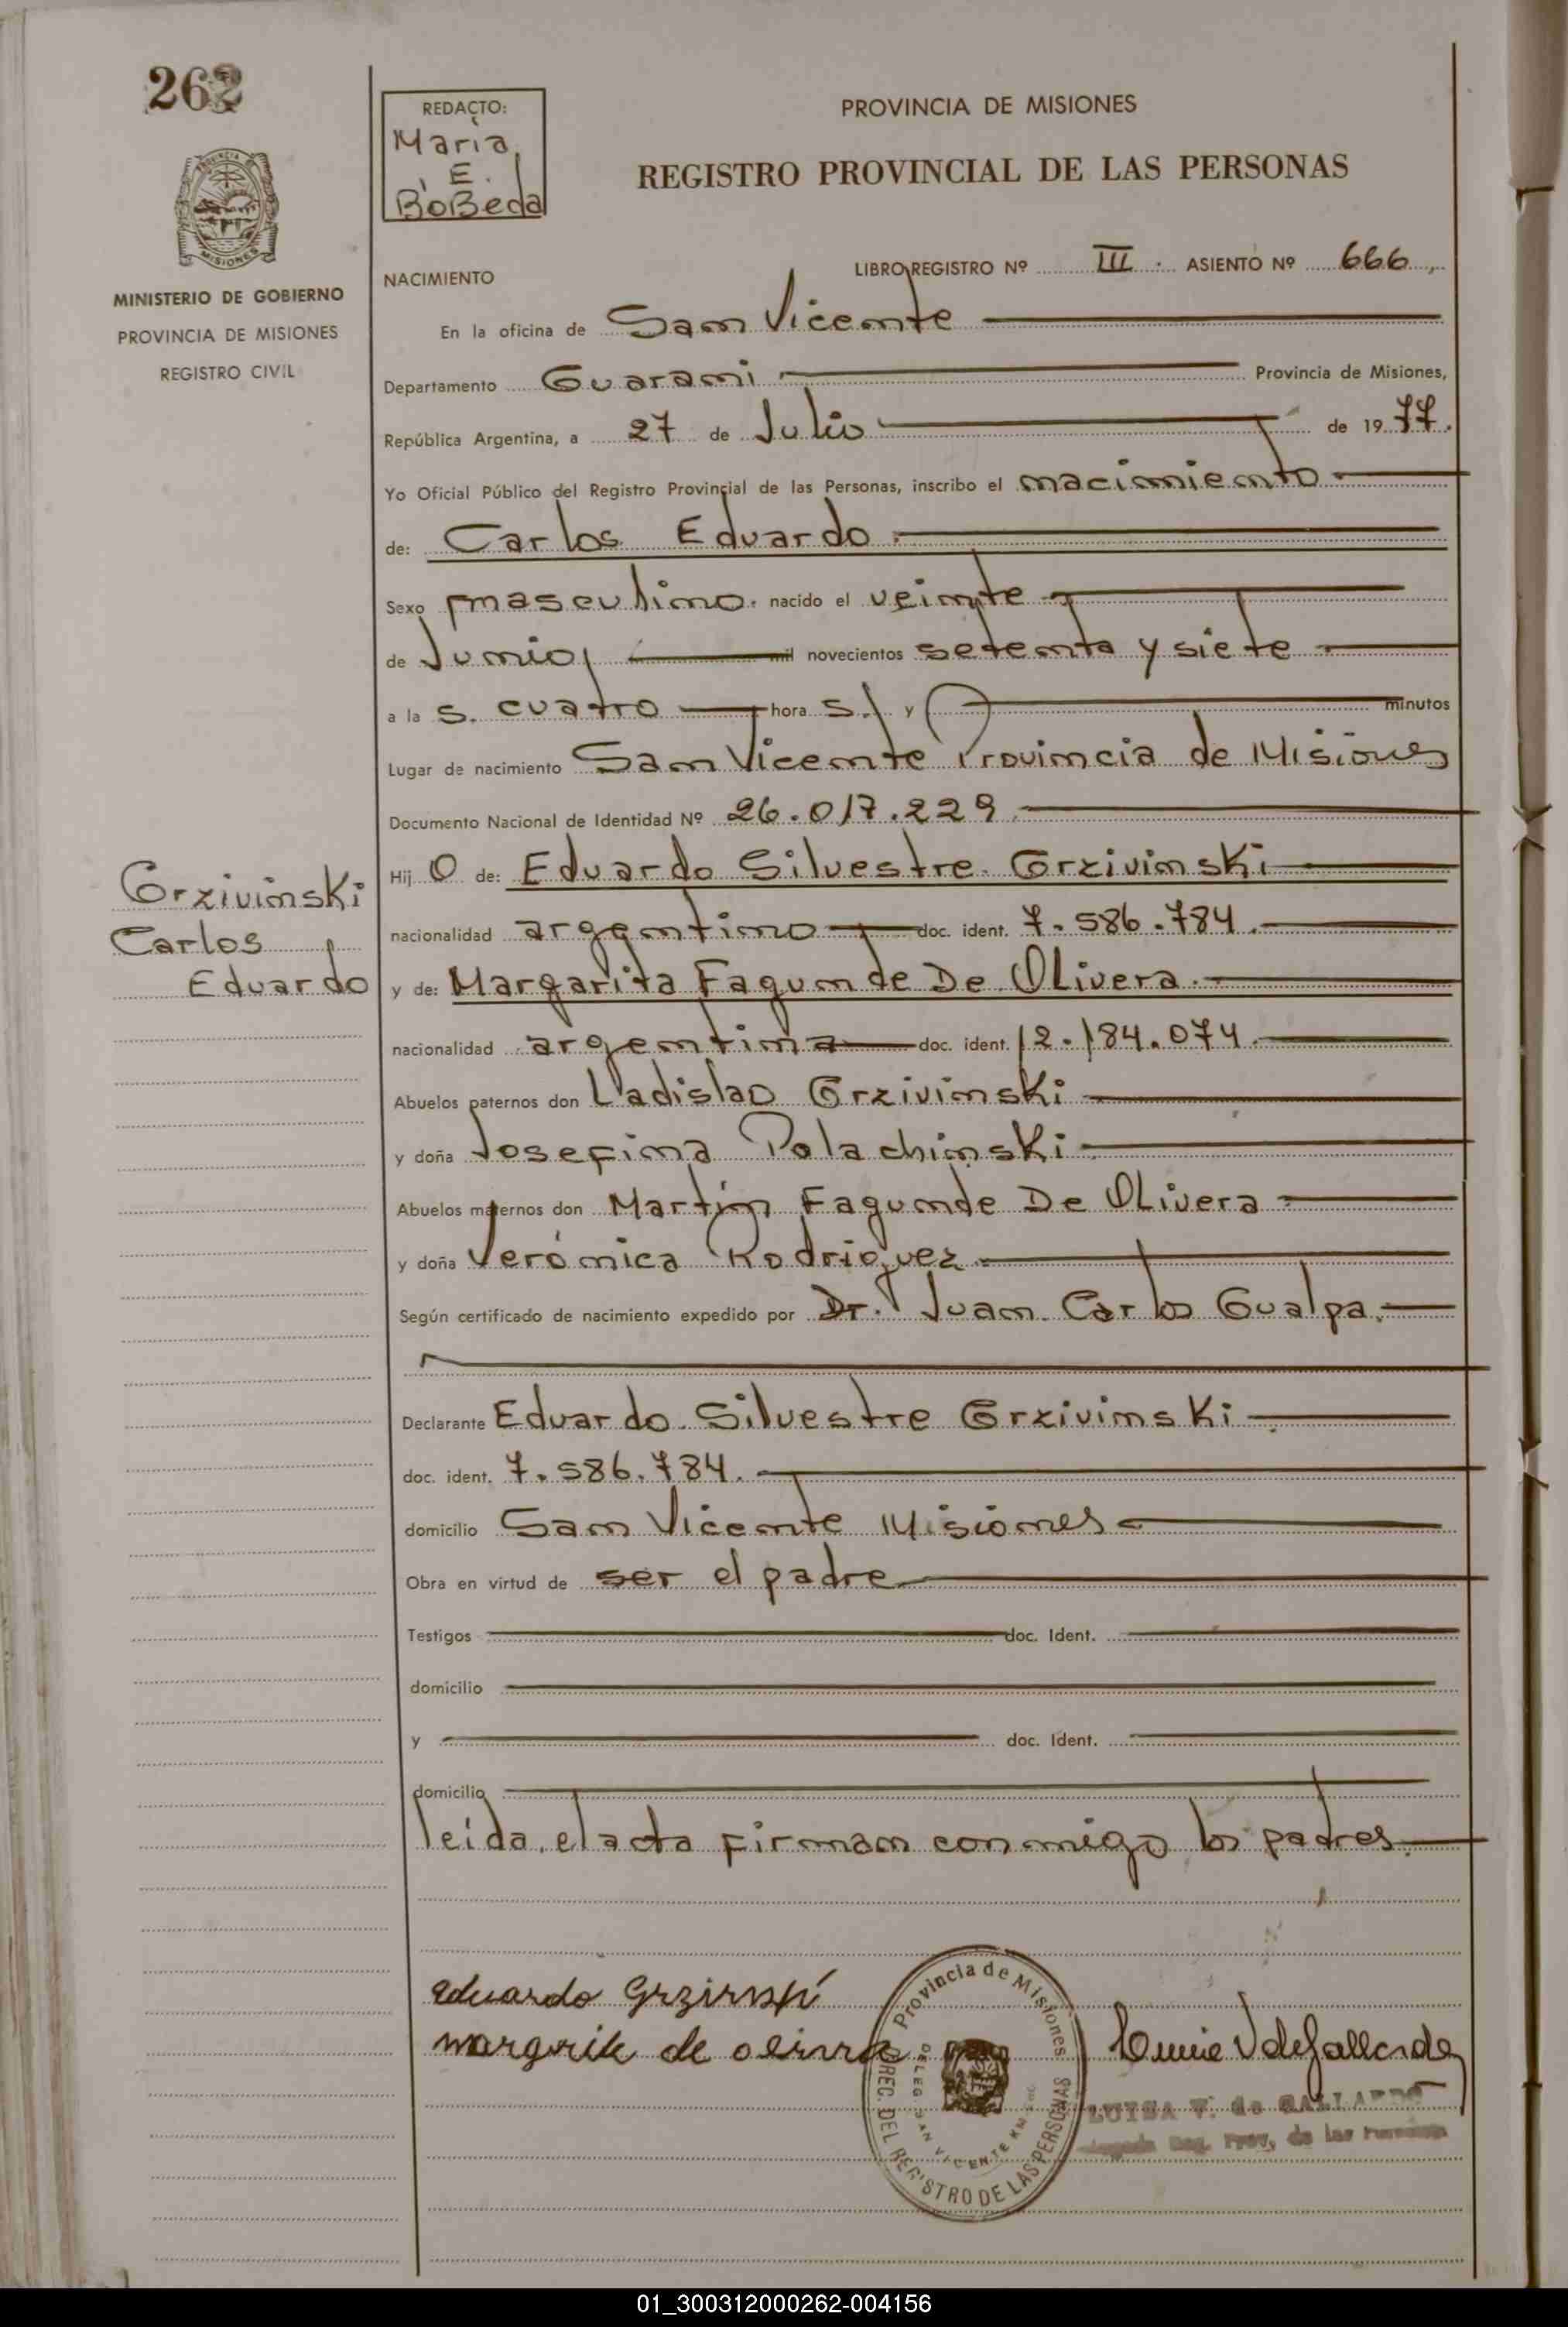 262
REDACTO:
Maria
E.
BoBeda
PROVINCIA DE MISIONES
REGISTRO PROVINCIAL DE LAS PERSONAS
MISIONES
MINISTERIO DE GOBIERNO
PROVINCIA DE MISIONES
REGISTRO CIVIL
NACIMIENTO
LIBRO REGISTRO Nº III. ASIENTO Nº 666
En la oficina de San Vicente
Departamento Guarani Provincia de Misiones,
República Argentina, a 27 de Julio de 1977.
Yo Oficial Público del Registro Provincial de las Personas, inscribo el nacimiento
de: Carlos Eduardo
Sexo masculino. nacido el veinte
de Junio mil novecientos setenta y siete
a la s. cuatro hora s. y minutos
Lugar de nacimiento San Vicente Provincia de Misiones
Documento Nacional de Identidad Nº 26.017.229
Hij o de: Eduardo Silvestre Grzivinski
nacionalidad argentino doc. ident. 7.586.784.
y de: Margarita Fagunde De Olivera.
nacionalidad argentina doc. ident. 12.184.074
Abuelos paternos don Ladislao Grzivinski
y doña Josefina Polachinski
Abuelos maternos don Martin Fagunde De Olivera
y doña Verónica Rodriguez
Según certificado de nacimiento expedido por Dr. Juan Carlos Gualpa.
Declarante Eduardo Silvestre Grzivinski
doc. ident. 7.586.784.
domicilio San Vicente Misiones
Obra en virtud de ser el padre
Testigos doc. Ident.
domicilio
y doc. Ident.
domicilio
leída el acta firman conmigo los padres
Grzivinski
Carlos
Eduardo
Eduardo
de
Provincia de Misiones
DIREC. DEL REGISTRO DE LAS PERSONAS
DELEG. SAN VICENTE KM
LUISA V. de GALLARDO
Reg. Prov, de las Personas
01_300312000262-004156